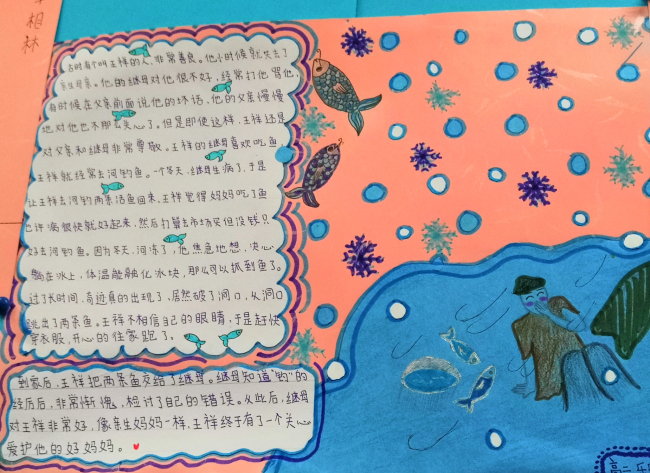 相林
古时有个叫王祥的人，非常善良。他小时候就失去了
亲生母亲。他的继母对他很不好，经常打他骂他，
有时候在父亲前面说他的坏话，他的父亲慢慢
地对他也不那么关心了。但是即使这样，王祥还是
对父亲和继母非常尊敬。王祥的继母喜欢吃鱼
王祥就经常去河钓鱼。一个冬天，继母生病了，于是
让王祥去河钓两条活鱼回来，王祥觉得妈妈吃了鱼
也许病很快就好起来，然后打算去市场买但没钱只
好去河钓鱼。因为冬天，河冻了，他焦急地想，决心
躺在冰上，体温融化冰块，那么可以抓到鱼了。
过了长时间，奇迹真的出现了，居然破了洞口，从洞口
跳出了两条鱼。王祥不相信自己的眼睛，于是赶快
穿衣服，开心的往家跑了。
到家后，王祥把两条鱼交给了继母。继母知道"钓"的
经历后，非常惭愧，检讨了自己的错误。从此后，继母
对王祥非常好，像亲生妈妈一样，王祥终于有了一个关心
爱护他的好妈妈。